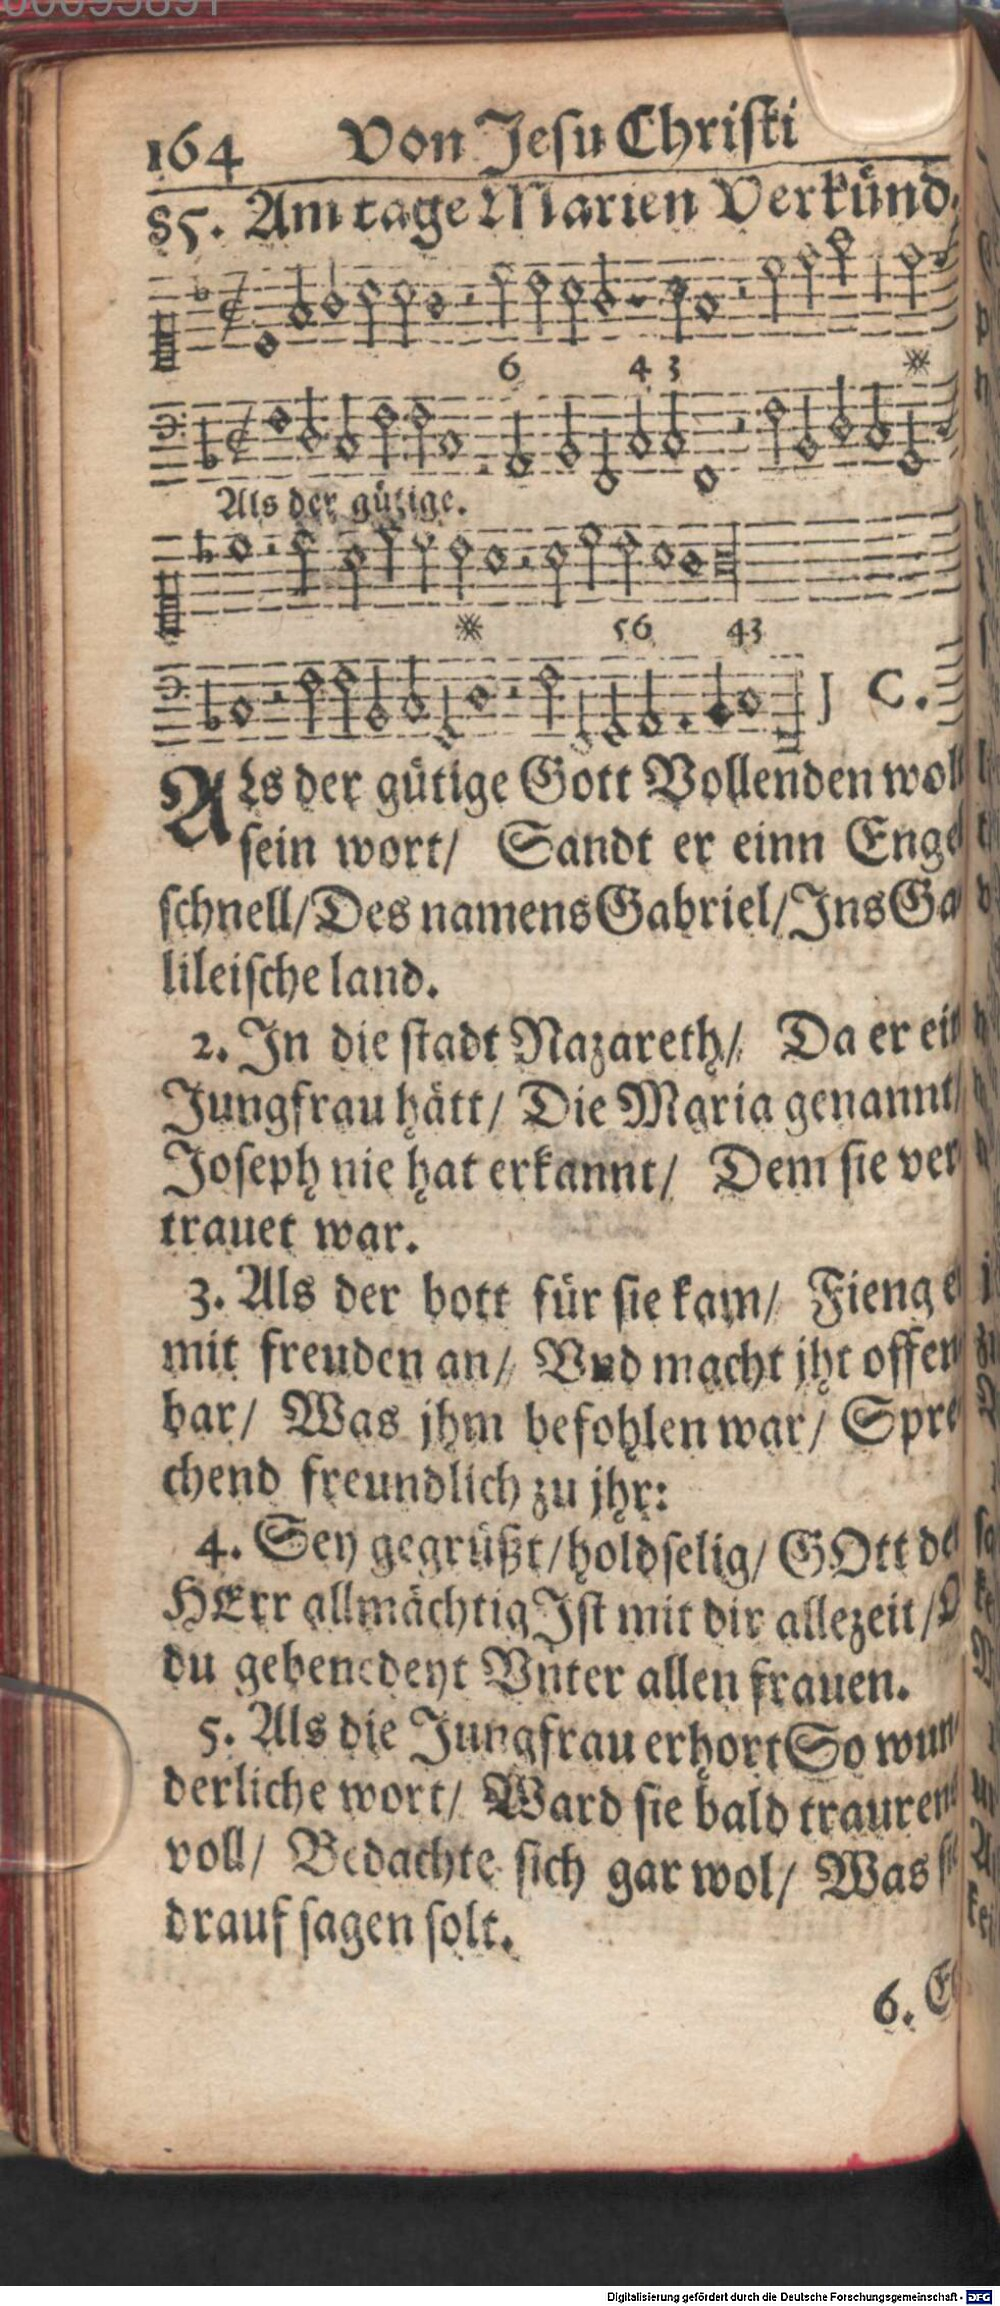 164 Von Jesu Christi
85. Am tage Marien Verkünd.
6 4 3
Als der gütige.
56 43
J C.
ALs der gütige Gott Vollenden wol
sein wort/ Sandt er einn Enge
schnell/Des namens Gabriel/Ins Ga
lileische land.
2. In die stadt Nazareth/ Da er ein
Jungfrau hätt/ Die Maria genannt/
Joseph nie hat erkannt/ Dem sie ver
trauet war.
3. Als der bott für sie kam/ Fieng e
mit freuden an/ Vnd macht jhr offen
bar/ Was jhm befohlen war/ Spre
chend freundlich zu jhr:
4. Sey gegrüßt/holdselig/ GOtt de
HErr allmächtig Ist mit dir allezeit/O
du gebenedeyt Vnter allen frauen.
5. Als die Jungfrau erhort So wun
derliche wort/ Ward sie bald trauren
voll/ Bedachte sich gar wol/ Was si
drauf sagen solt.
6.
Digitalisierung gefördert durch die Deutsche Forschungsgemeinschaft - DFG